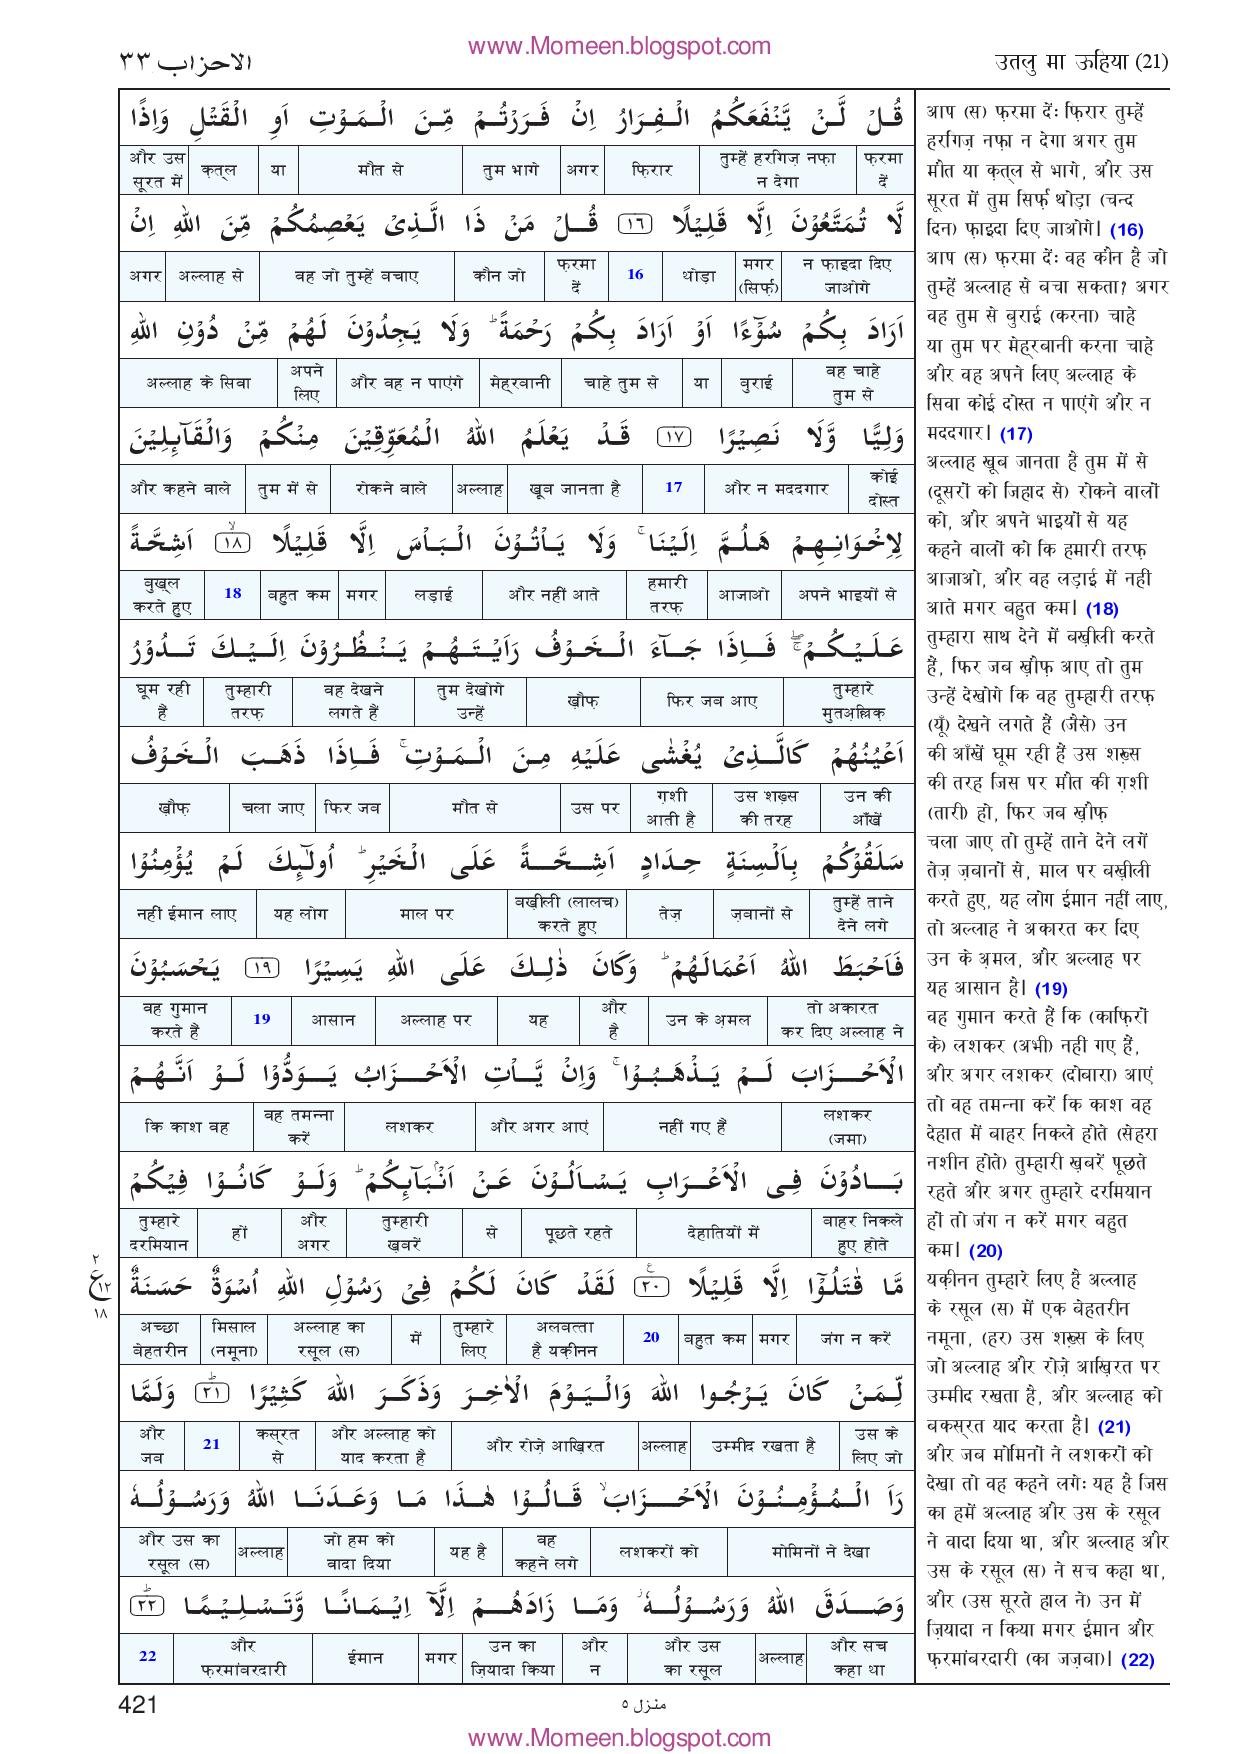 www.Momeen.blogspot.com
الاحزاب ٣٣
उतलु मा ऊहिया (21)
قُلْ لَّنْ يَّنْفَعَكُمُ الْفِرَارُ اِنْ فَرَرْتُمْ مِّنَ الْمَوْتِ اَوِ الْقَتْلِ وَاِذًا
फ़रमा दें | तुम्हें हरगिज़ नफ़ा न देगा | फ़िरार | अगर | तुम भागे | मौत से | या | क़त्ल | और उस सूरत में
لَّا تُمَتَّعُوْنَ اِلَّا قَلِيْلًا ١٦ قُلْ مَنْ ذَا الَّذِىْ يَعْصِمُكُمْ مِّنَ اللهِ اِنْ
न फ़ाइदा दिए जाओगे | मगर (सिर्फ़) | थोड़ा | 16 | फ़रमा दें | कौन जो | वह जो तुम्हें बचाए | अल्लाह से | अगर
اَرَادَ بِكُمْ سُوْٓءًا اَوْ اَرَادَ بِكُمْ رَحْمَةً ؕ وَلَا يَجِدُوْنَ لَهُمْ مِّنْ دُوْنِ اللهِ
वह चाहे तुम से | बुराई | या | चाहे तुम से | मेह्रबानी | और वह न पाएंगे | अपने लिए | अल्लाह के सिवा
وَلِيًّا وَّلَا نَصِيْرًا ١٧ قَدْ يَعْلَمُ اللهُ الْمُعَوِّقِيْنَ مِنْكُمْ وَالْقَآئِلِيْنَ
कोई दोस्त | और न मददगार | 17 | खूब जानता है | अल्लाह | रोकने वाले | तुम में से | और कहने वाले
لِاِخْوَانِهِمْ هَلُمَّ اِلَيْنَا ۚ وَلَا يَاْتُوْنَ الْبَاْسَ اِلَّا قَلِيْلًا ١٨ۙ اَشِحَّةً
अपने भाइयों से | आजाओ | हमारी तरफ़ | और नहीं आते | लड़ाई | मगर | बहुत कम | 18 | बुख़्ल करते हुए
عَلَيْكُمْ ۖۚ فَاِذَا جَآءَ الْخَوْفُ رَاَيْتَهُمْ يَنْظُرُوْنَ اِلَيْكَ تَدُوْرُ
तुम्हारे मुतअ़ल्लिक़ | फिर जब आए | ख़ौफ़ | तुम देखोगे उन्हें | वह देखने लगते हैं | तुम्हारी तरफ़ | घूम रही हैं
اَعْيُنُهُمْ كَالَّذِىْ يُغْشٰى عَلَيْهِ مِنَ الْمَوْتِ ۚ فَاِذَا ذَهَبَ الْخَوْفُ
उन की आँखें | उस शख़्स की तरह | ग़शी आती है | उस पर | मौत से | फिर जब | चला जाए | ख़ौफ़
سَلَقُوْكُمْ بِاَلْسِنَةٍ حِدَادٍ اَشِحَّةً عَلَى الْخَيْرِ ؕ اُولٰٓئِكَ لَمْ يُؤْمِنُوْا
तुम्हें ताने देने लगे | ज़बानों से | तेज़ | बख़ीली (लालच) करते हुए | माल पर | यह लोग | नहीं ईमान लाए
فَاَحْبَطَ اللهُ اَعْمَالَهُمْ ؕ وَكَانَ ذٰلِكَ عَلَى اللهِ يَسِيْرًا ١٩ يَحْسَبُوْنَ
तो अकारत कर दिए अल्लाह ने | उन के अ़मल | और है | यह | अल्लाह पर | आसान | 19 | वह गुमान करते हैं
الْاَحْزَابَ لَمْ يَذْهَبُوْا ۚ وَاِنْ يَّاْتِ الْاَحْزَابُ يَوَدُّوْا لَوْ اَنَّهُمْ
लशकर (जमा) | नहीं गए हैं | और अगर आएं | लशकर | वह तमन्ना करें | कि काश वह
بَادُوْنَ فِى الْاَعْرَابِ يَسْاَلُوْنَ عَنْ اَنْۢبَآئِكُمْ ؕ وَلَوْ كَانُوْا فِيْكُمْ
बाहर निकले हुए होते | देहातियों में | पूछते रहते | से | तुम्हारी ख़बरें | और अगर | हों | तुम्हारे दरमियान
مَّا قٰتَلُوْٓا اِلَّا قَلِيْلًا ٢٠ۧ لَقَدْ كَانَ لَكُمْ فِىْ رَسُوْلِ اللهِ اُسْوَةٌ حَسَنَةٌ
٢ ع ١٢ ١٨
जंग न करें | मगर | बहुत कम | 20 | अलबत्ता है यक़ीनन | तुम्हारे लिए | में | अल्लाह का रसूल (स) | मिसाल (नमूना) | अच्छा बेहतरीन
لِّمَنْ كَانَ يَرْجُوا اللهَ وَالْيَوْمَ الْاٰخِرَ وَذَكَرَ اللهَ كَثِيْرًا ٢١ؕ وَلَمَّا
उस के लिए जो | उम्मीद रखता है | अल्लाह | और रोज़े आख़िरत | और अल्लाह को याद करता है | कस्रत से | 21 | और जब
رَاَ الْمُؤْمِنُوْنَ الْاَحْزَابَ ۙ قَالُوْا هٰذَا مَا وَعَدَنَا اللهُ وَرَسُوْلُهٗ
मोमिनों ने देखा | लशकरों को | वह कहने लगे | यह है | जो हम को वादा दिया | अल्लाह | और उस का रसूल (स)
وَصَدَقَ اللهُ وَرَسُوْلُهٗ ۫ وَمَا زَادَهُمْ اِلَّآ اِيْمَانًا وَّتَسْلِيْمًا ٢٢ؕ
और सच कहा था | अल्लाह | और उस का रसूल | और न | उन का ज़ियादा किया | मगर | ईमान | और फ़रमांबरदारी | 22
आप (स) फ़रमा दें: फ़िरार तुम्हें
हरगिज़ नफ़ा न देगा अगर तुम
मौत या क़त्ल से भागे, और उस
सूरत में तुम सिर्फ़ थोड़ा (चन्द
दिन) फ़ाइदा दिए जाओगे। (16)
आप (स) फ़रमा दें: वह कौन है जो
तुम्हें अल्लाह से बचा सकता? अगर
वह तुम से बुराई (करना) चाहे
या तुम पर मेह्रबानी करना चाहे
और वह अपने लिए अल्लाह के
सिवा कोई दोस्त न पाएंगे और न
मददगार। (17)
अल्लाह खूब जानता है तुम में से
(दूसरों को जिहाद से) रोकने वालों
को, और अपने भाइयों से यह
कहने वालों को कि हमारी तरफ़
आजाओ, और वह लड़ाई में नहीं
आते मगर बहुत कम। (18)
तुम्हारा साथ देने में बख़ीली करते
हैं, फिर जब ख़ौफ़ आए तो तुम
उन्हें देखोगे कि वह तुम्हारी तरफ़
(यूँ) देखने लगते हैं (जैसे) उन
की आँखें घूम रही हैं उस शख़्स
की तरह जिस पर मौत की ग़शी
(तारी) हो, फिर जब ख़ौफ़
चला जाए तो तुम्हें ताने देने लगें
तेज़ ज़बानों से, माल पर बख़ीली
करते हुए, यह लोग ईमान नहीं लाए,
तो अल्लाह ने अकारत कर दिए
उन के अ़मल, और अल्लाह पर
यह आसान है। (19)
वह गुमान करते हैं कि (काफ़िरों
के) लशकर (अभी) नहीं गए हैं,
और अगर लशकर (दोबारा) आएं
तो वह तमन्ना करें कि काश वह
देहात में बाहर निकले होते (सेहरा
नशीन होते) तुम्हारी ख़बरें पूछते
रहते और अगर तुम्हारे दरमियान
हों तो जंग न करें मगर बहुत
कम। (20)
यक़ीनन तुम्हारे लिए है अल्लाह
के रसूल (स) में एक बेहतरीन
नमूना, (हर) उस शख़्स के लिए
जो अल्लाह और रोज़े आख़िरत पर
उम्मीद रखता है, और अल्लाह को
बकस्रत याद करता है। (21)
और जब मोमिनों ने लशकरों को
देखा तो वह कहने लगे: यह है जिस
का हमें अल्लाह और उस के रसूल
ने वादा दिया था, और अल्लाह और
उस के रसूल (स) ने सच कहा था,
और (उस सूरते हाल ने) उन में
ज़ियादा न किया मगर ईमान और
फ़रमांबरदारी (का जज़बा)। (22)
421
منزل ٥
www.Momeen.blogspot.com